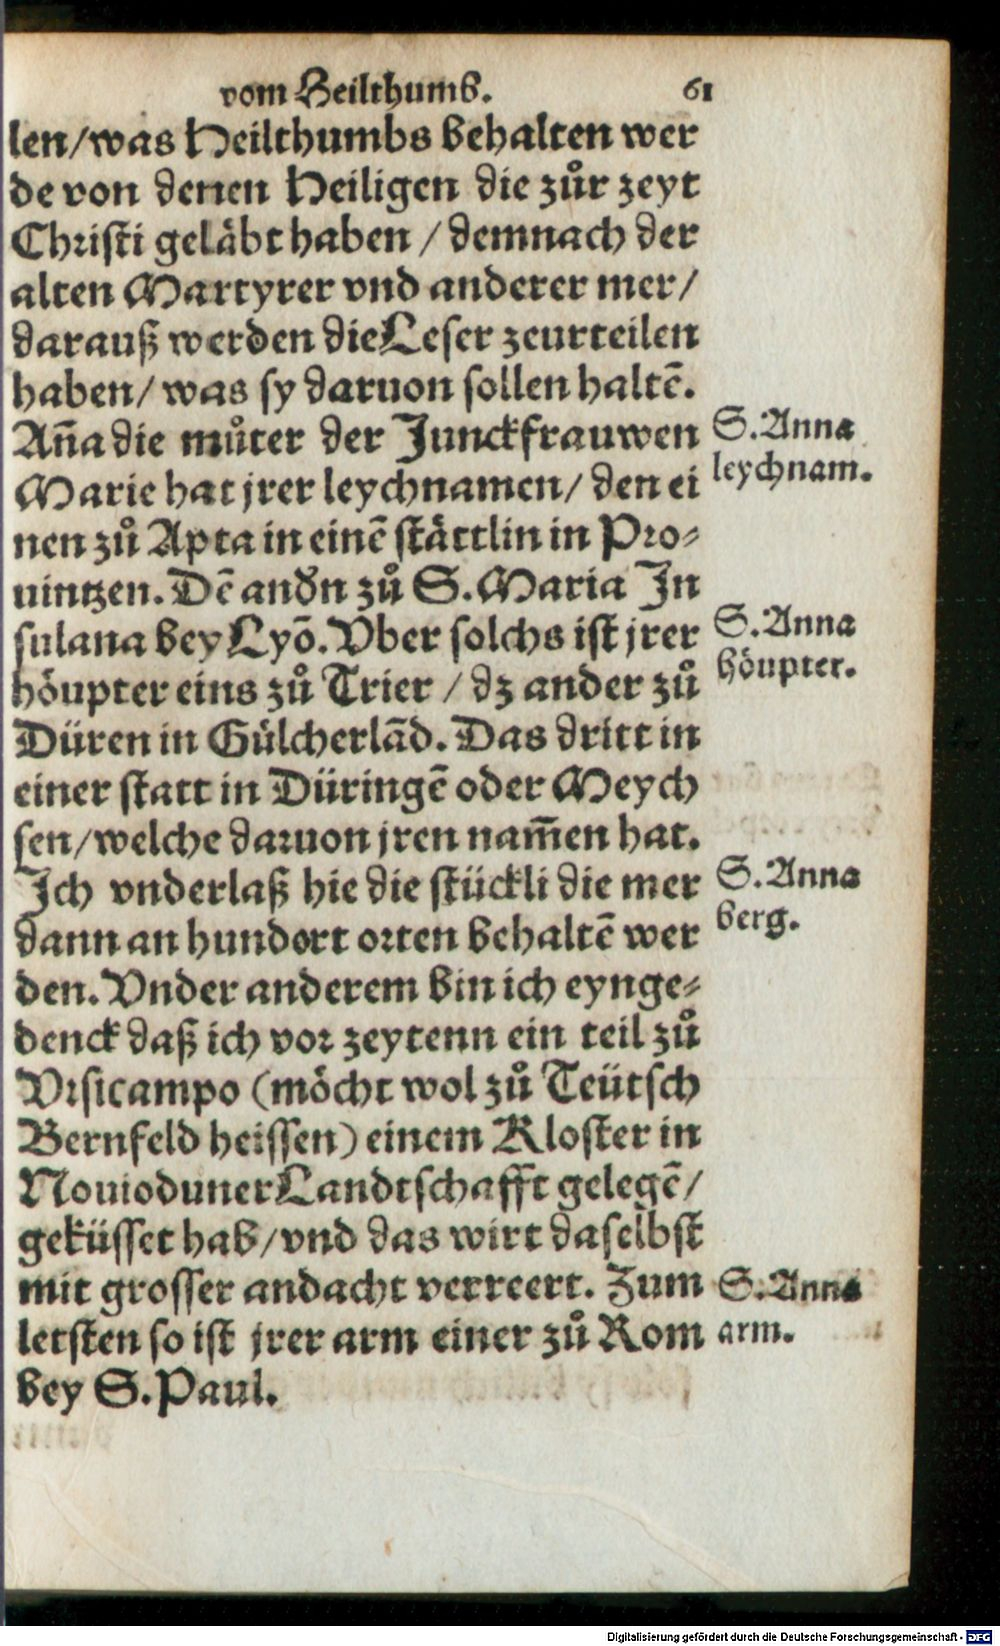 vom Heilthumb. 61
len/was Heilthumbs behalten wer
de von denen Heiligen die zůr zeyt
Christi geläbt haben / demnach der
alten Martyrer vnd anderer mer/
darauß werden die Leser zeurteilen
haben/ was sy daruon sollen haltē.
Año die můter der Junckfrauwen
Marie hat jrer leychnamen/ den ei
nen zů Apta in einē stättlin in Pro⸗
uintzen. Dē andn zů S. Maria In
sulana bey Lyō. Vber solchs ist jrer
höupter eins zů Trier / dz ander zů
Düren in Gülcherlād. Das dritt in
einer statt in Düringē oder Meych
sen/welche daruon jren nam̄en hat.
Ich vnderlaß hie die stückli die mer
dann an hundert orten behaltē wer
den. Vnder anderem bin ich eynge⸗
denck daß ich vor zeytenn ein teil zů
Vrsicampo (möcht wol zů Teütsch
Bernfeld heissen) einem Kloster in
Nouioduner Landtschafft gelegē/
geküsset hab/vnd das wirt daselbst
mit grosser andacht verreert. Zum
letsten so ist jrer arm einer zů Rom
bey S. Paul.
S. Anna
leychnam.
S. Anna
höupter.
S. Anna
berg.
S. Anna
arm.
Digitalisierung gefördert durch die Deutsche Forschungsgemeinschaft - DFG